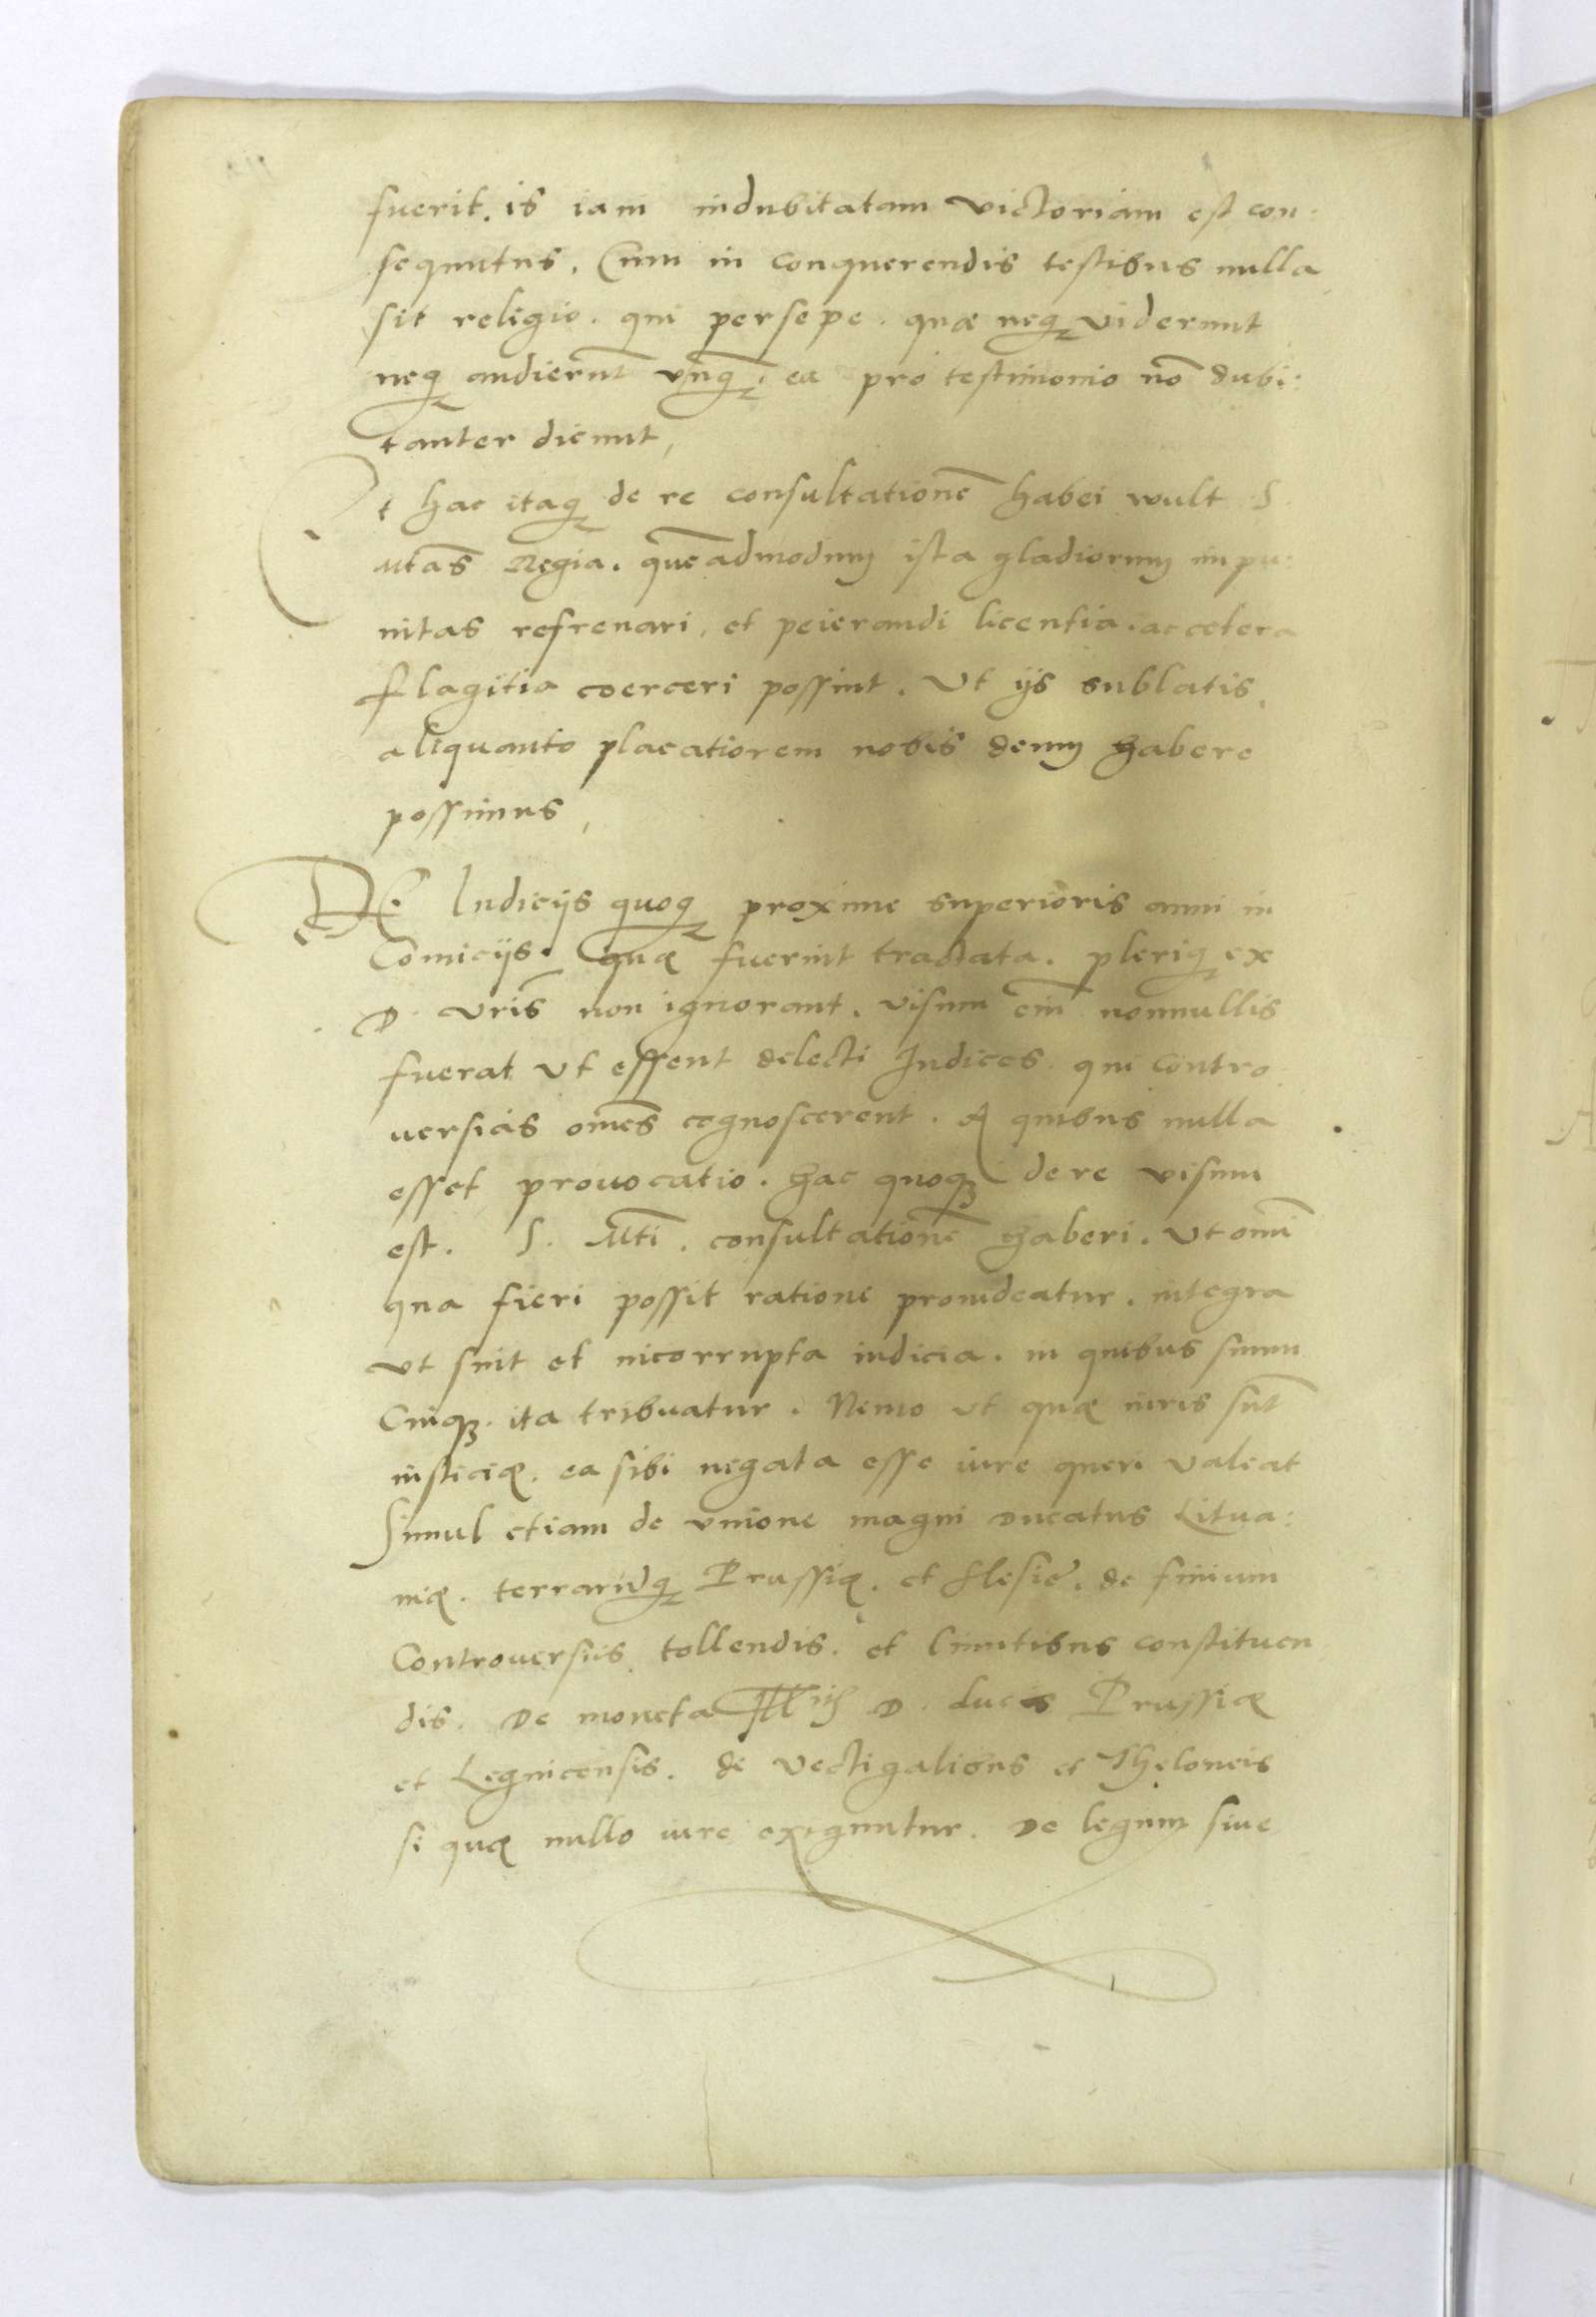 fuerit. is iam indubitatam victoriam est con:
sequutus, Cum in conquerendis testibus nulla
sit religio. qui persepe. quæ neq viderunt
neq audierūt vnq̄. ea pro testimonio nō dubi:
tanter dicunt,
Et hac itaq de re consultationē habei wult S.
Mtas Regia. quēadmodum ista gladiorum impu:
nitas refrenari, et peierandi licentia. ac cetera
flagitia coerceri possint. Vt ijs sublatis,
aliquanto placatiorem nobis deum habere
possimus,
DE Iudicijs quoq proxime superioris anni in
Comicijs. quę fuerint tractata. pleriq ex
D. vris non ignorant. visum em̄ nonnullis
fuerat vt essent delecti Iudices qui contro
uersias om̄es cognoscerent. A quibus nulla
esset prouocatio. hac quoqꝫ de re visum
est. S. Mti. consultationē haberi. Vt omī
qua fieri possit ratione prouideatur. integra
vt sint et incorrupta iudicia. in quibus suum
Cuiqꝫ. ita tribuatur. Nemo vt quæ iuris sūt
iusticię. ea sibi negata esse iure queri valeat
Simul etiam de vnione magni Ducatus Litua:
nię. terrarūq Prussię. et Slesie. de finium
Controuersiis tollendis. et limitibus constituen
dis. De moneta Illᵐⁱ D. ducis Prussię
et Legnicensis. de Vectigalibus et Theloneis
si quę nullo iure exiguntur. De legum siue